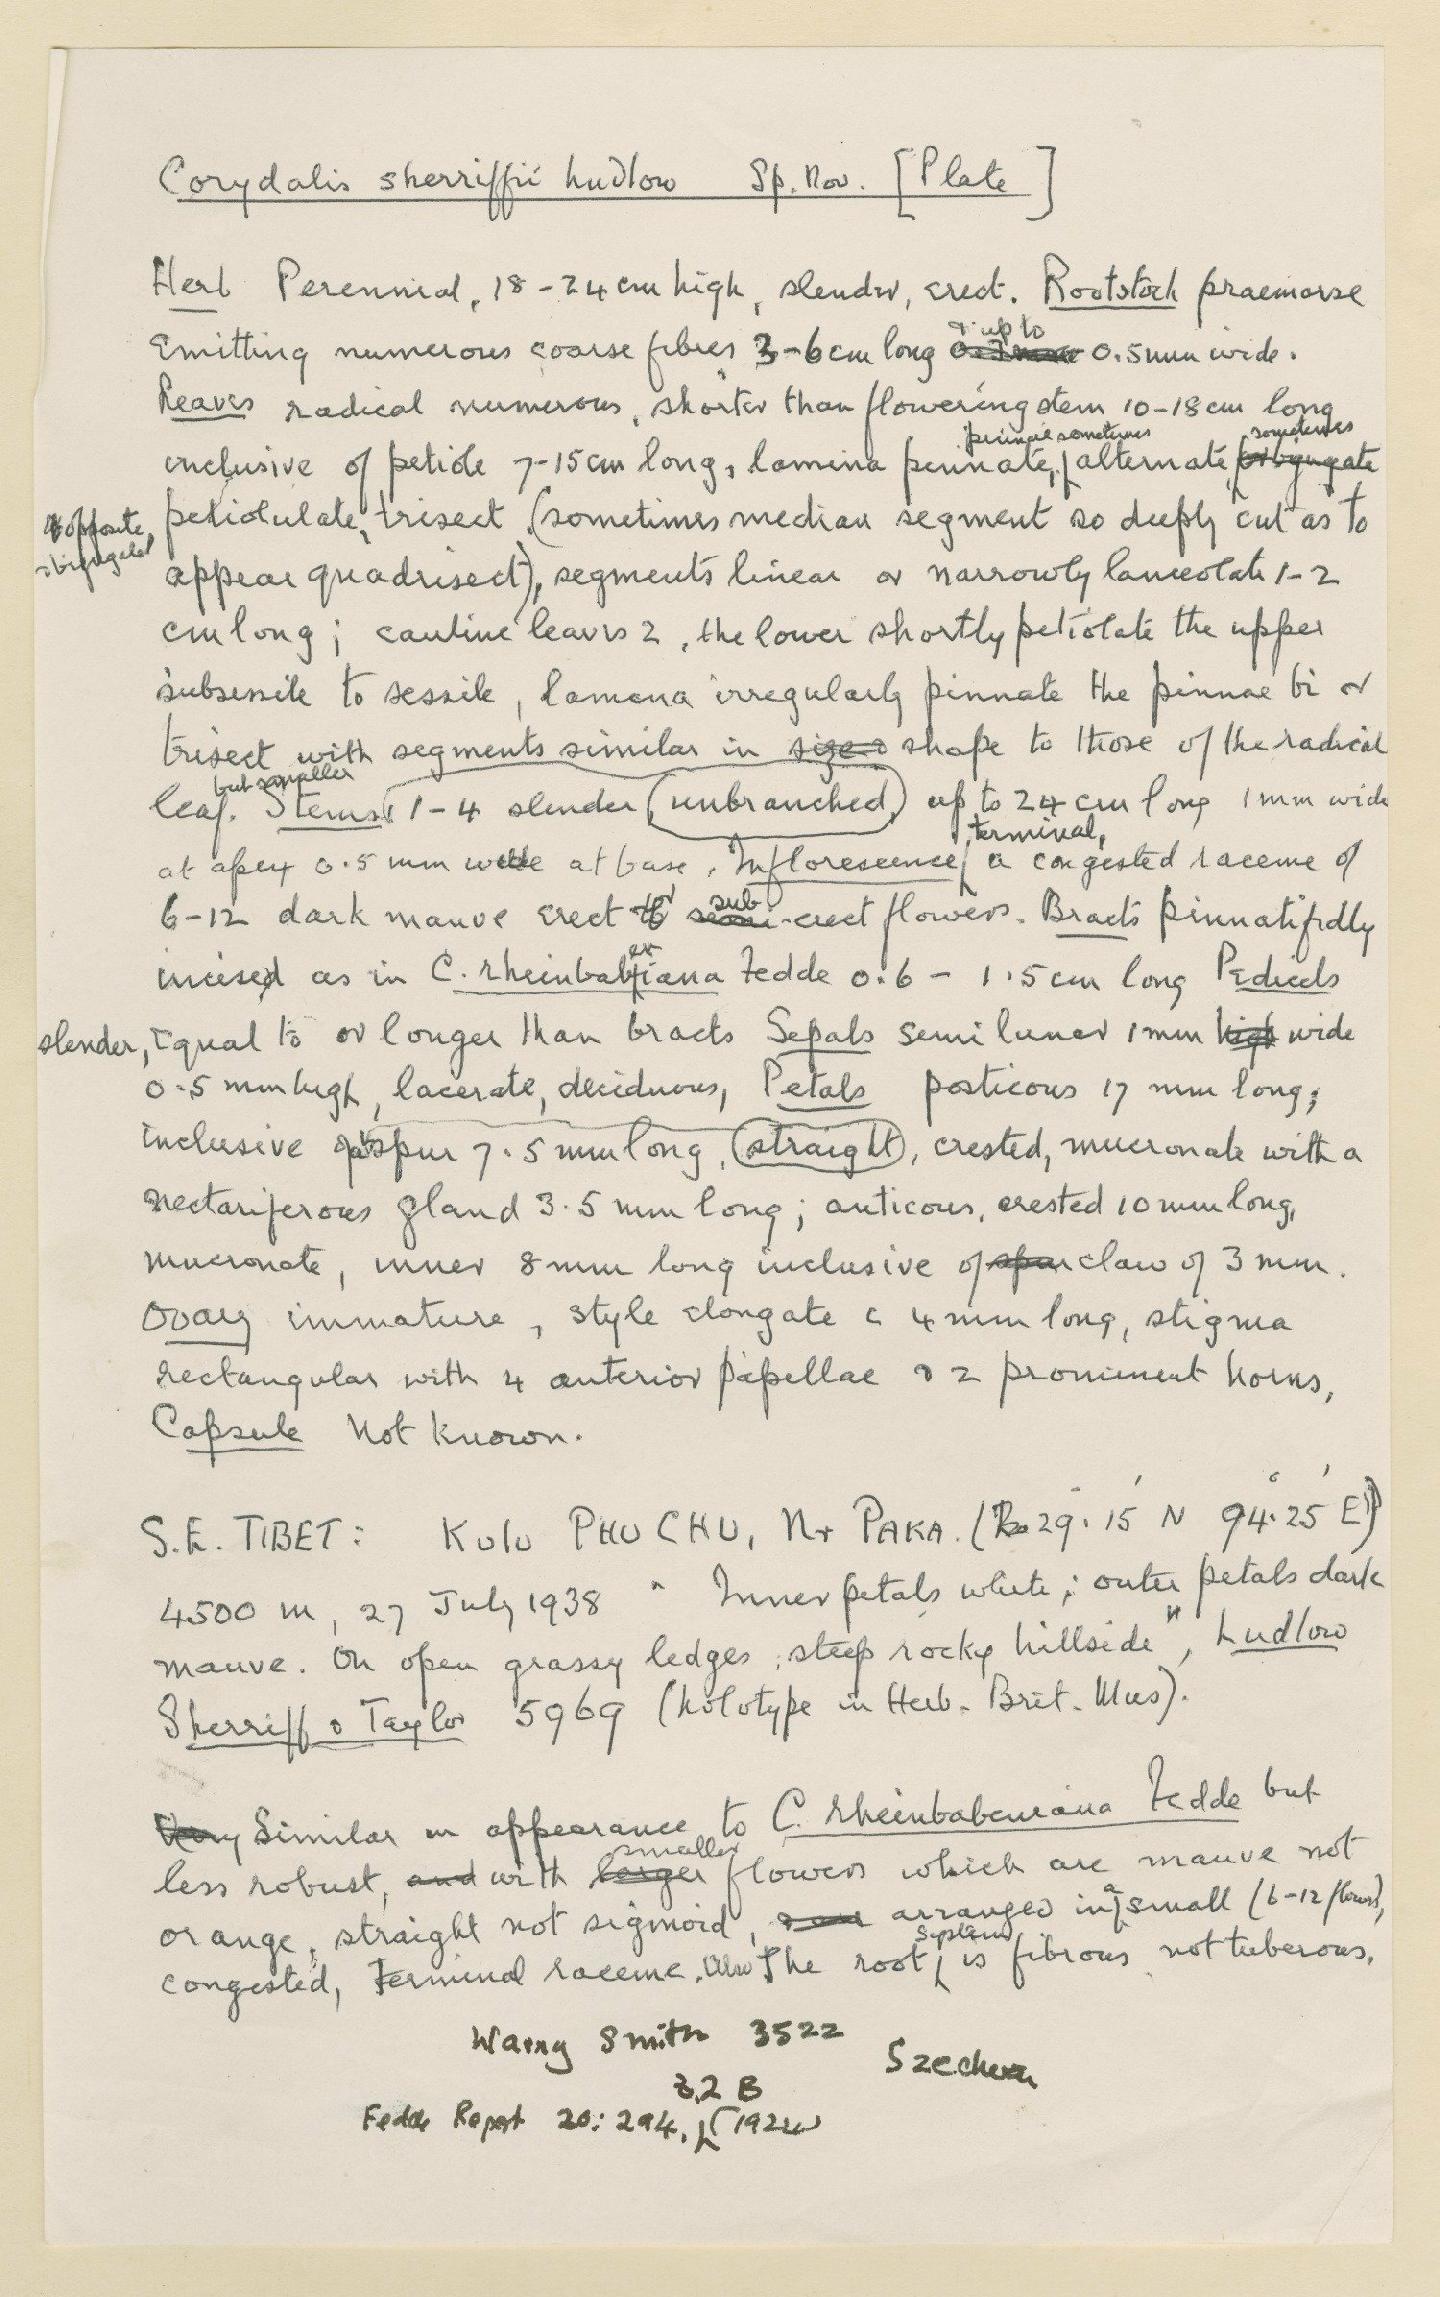 Corydalis sherriffii Ludlow Sp. Nov. [Plate]
Herb Perennial, 18-24 cm high, slender, erect. Rootstock praemorse
& up to
emitting numerous coarse fibres 3-6 cm long 0.5 mm wide.
Leaves radical numerous, shorter than flowering stem 10-18 cm long
pinnae sometimes sometimes
inclusive of petiole 7-15 cm long, lamina pinnate, alternate, or bijugate
& opposite,
petiolulate, trisect (sometimes median segment so deeply cut as to
- bijugate
appear quadrisect), segments linear or narrowly lanceolate 1-2
cm long; cauline leaves 2, the lower shortly petiolate the upper
subsessile to sessile, lamina irregularly pinnate the pinnae bi or
trisect with segments similar in size & shape to those of the radical
but smaller
leaf. Stems, 1-4 slender, (unbranched), up to 24 cm long 1 mm wide
terminal,
at apex 0.5 mm wide at base. Inflorescence, a congested raceme of
or sub
6-12 dark mauve erect to semi-erect flowers. Bracts pinnatifidly
en
incised as in C. rheinbabiana Fedde 0.6 - 1.5 cm long Pedicels
slender, equal to or longer than bracts Sepals semi lunar 1 mm high wide
0.5 mm high, lacerate, deciduous, Petals posticous 17 mm long;
inclusive of spur 7.5 mm long, (straight), crested, mucronate with a
nectariferous gland 3.5 mm long; anticous, crested 10 mm long,
mucronate, inner 8 mm long inclusive of spur claw of 3 mm.
Ovary immature, style elongate c 4 mm long, stigma
rectangular with 4 anterior papillae & 2 prominent horns,
Capsule Not known.
S.E. TIBET: Kulu PHU CHU, Nr PAKA. (29° 15' N 94° 25' E)
4500 m, 27 July 1938 " Inner petals white; outer petals dark
mauve. On open grassy ledges, steep rocky hillside", Ludlow
Sherriff & Taylor 5969 (holotype in Herb. Brit. Mus).
Very Similar in appearance to C. rheinbabeniana Fedde but
smaller
less robust, and with larger flowers which are mauve not
orange, straight not sigmoid, arranged in a small (6-12 flowers),
system
congested, terminal raceme. Also The root is fibrous not tuberous.
Warry Smith 3522
Szechuan
32 B
Fedde Repert 20: 294, (1924)